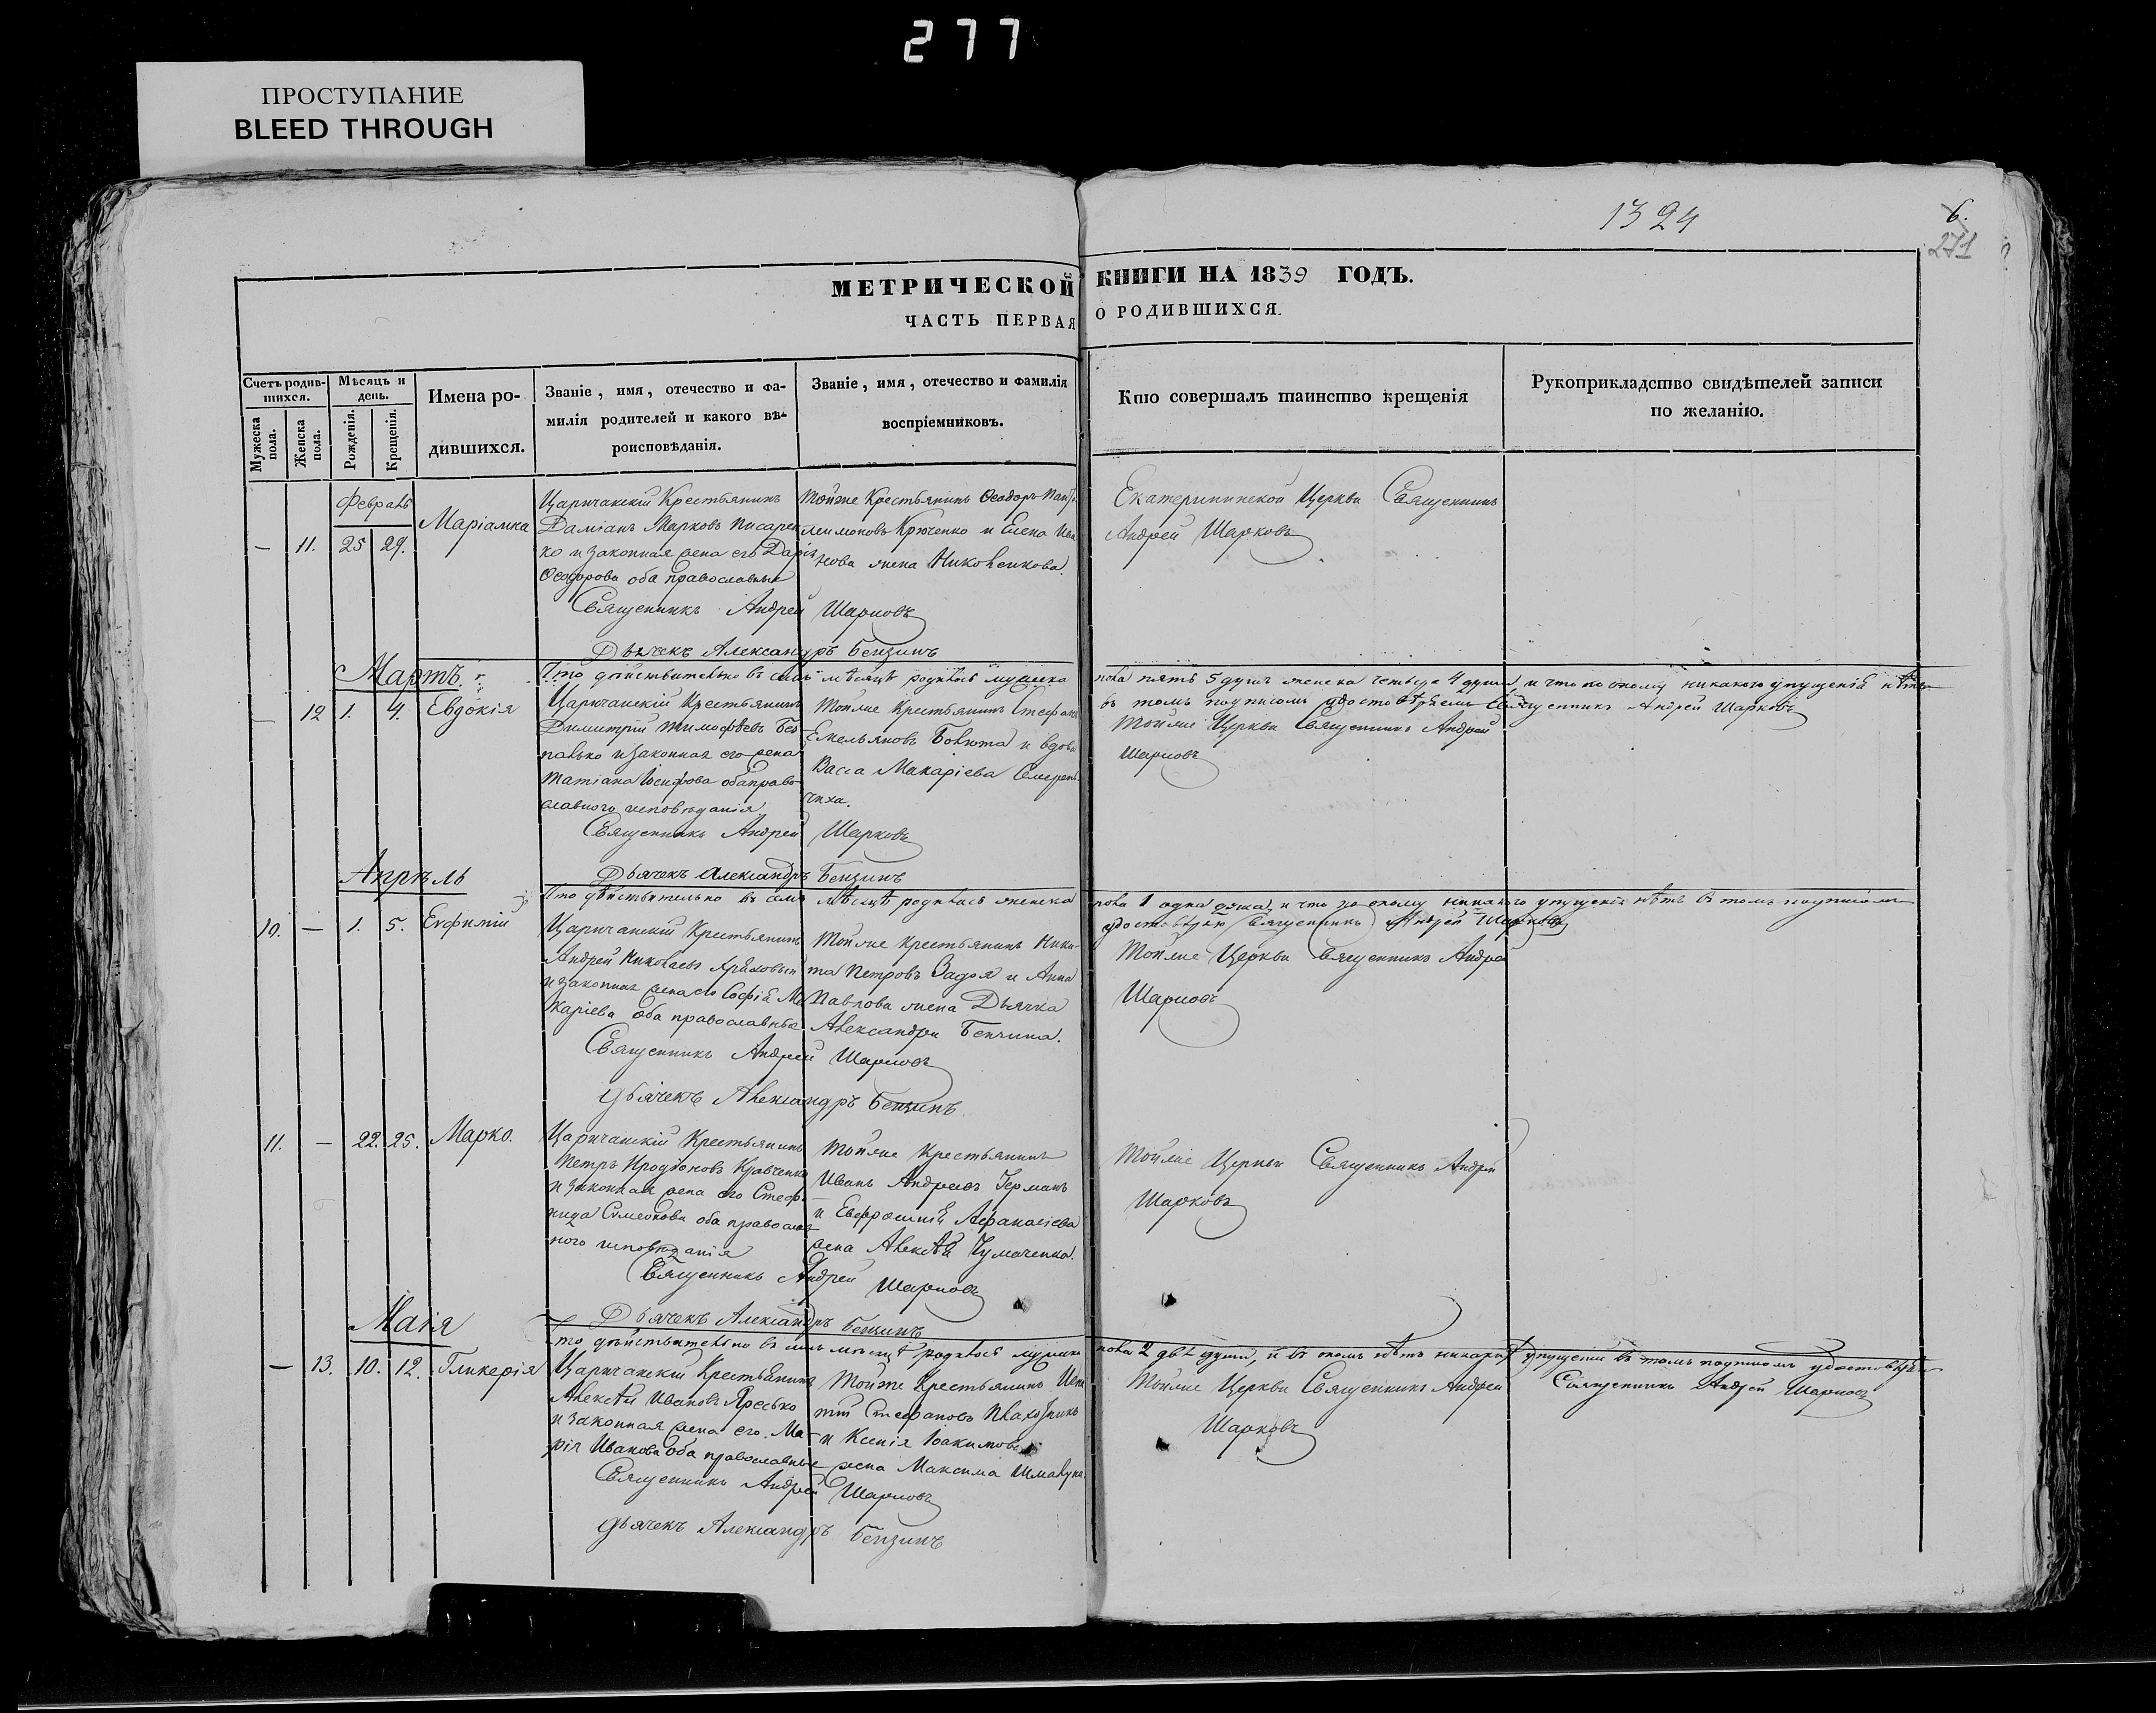 277
ПРОСТУПАНИЕ
BLEED THROUGH
1324
6.
271
МЕТРИЧЕСКОЙ КНИГИ НА 1839 ГОДЪ.
ЧАСТЬ ПЕРВАЯ О РОДИВШИХСЯ.
Счетъ родившихся.
Мужеска пола.
Женска пола.
Мѣсяцъ и день.
Рожденія.
Крещенія.
Имена родившихся.
Званіе, имя, отечество и фамилія родителей и какого вѣроисповѣданія.
Званіе, имя, отечество и фамилія воспріемниковъ.
Кто совершалъ таинство крещенія
Рукоприкладство свидѣтелей записи по желанію.
Февраль
— 11. 25 29. Маріамна
Царичанскій Крестьянинъ
Даміанъ Марковъ Писарен
ко и законная жена его Дарія
Ѳеодорова оба православные
Тойже Крестьянинъ Ѳеодоръ Пан
леимоновъ Крюченко и Елена Ива
нова жена Николенкова.
Екатерининской Церкви Священникъ
Андрей Шарковъ
Священникъ Андрей Шарковъ
Дьячекъ Александръ Бензинъ
Мартъ.
Что дѣйствительно въ семъ мѣсяцѣ родилось мужеска пола пять 5 душъ женска четыре 4 души, и что по оному никакого упущенія нѣтъ
въ томъ подписомъ удостовѣряемъ Священникъ Андрей Шарковъ
— 12 1. 4. Евдокія
Царичанскій Крестьянинъ
Димитрій Тимофѣевъ Без
палько и законная его жена
Татіана Іосифова оба право
славного исповѣданія
Тойже Крестьянинъ Стефанъ
Емельяновъ Бовюта и вдова
Васса Макаріева Смерен
чиха.
Тойже Церкви Священникъ Андрей
Шарковъ
Священникъ Андрей Шарковъ
Дьячекъ Александръ Бензинъ
Апрѣль
Что дѣйствительно въ семъ мѣсяцѣ родилась женска пола 1 одна душа, и что по оному никакого упущенія нѣтъ въ томъ подписомъ
удостовѣряю Священникъ Андрей Шарковъ
10. — 1. 5. Евфимій
Царичанскій Крестьянинъ
Андрей Николаевъ
и законная жена его Софія Ма
каріева оба православные
Тойже крестьянинъ Ники
та Петровъ Задоя и Анна
Павлова жена Дьячка
Александра Бензина.
Тойже Церкви Священникъ Андрей
Шарковъ
Священникъ Андрей Шарковъ
Дьячекъ Александръ Бензинъ
11. — 22. 25. Марко.
Царичанскій Крестьянинъ
Петръ Иродіоновъ Кравченко
и законная жена его Стеф
нида Симеонова оба православ
ного исповѣданія
Тойже Крестьянинъ
Иванъ Андреевъ Германъ
и Евфросинія Афанасіева
жена Алексѣя Чумаченка.
Тойже Церкви Священникъ Андрей
Шарковъ
Священникъ Андрей Шарковъ
Дьячекъ Александръ Бензинъ
Маія
Что дѣйствительно въ семъ мѣсяцѣ родилось мужеска пола 2 двѣ души, и въ ономъ нѣтъ никаких упущеній въ томъ подписомъ удостовѣряю
Священникъ Андрей Шарковъ
— 13. 10. 12. Гликерія
Царичанскій Крестьянинъ
Алексѣй Ивановъ Яресько
и законная жена его Ма
рія Иванова оба православные
Тойже Крестьянинъ Игна
тій Стефановъ Плахотникъ
и Ксенія Іоакимова
жена Максима Шмалука.
Тойже Церкви Священникъ Андрей
Шарковъ
Священникъ Андрей Шарковъ
Дьячекъ Александръ Бензинъ